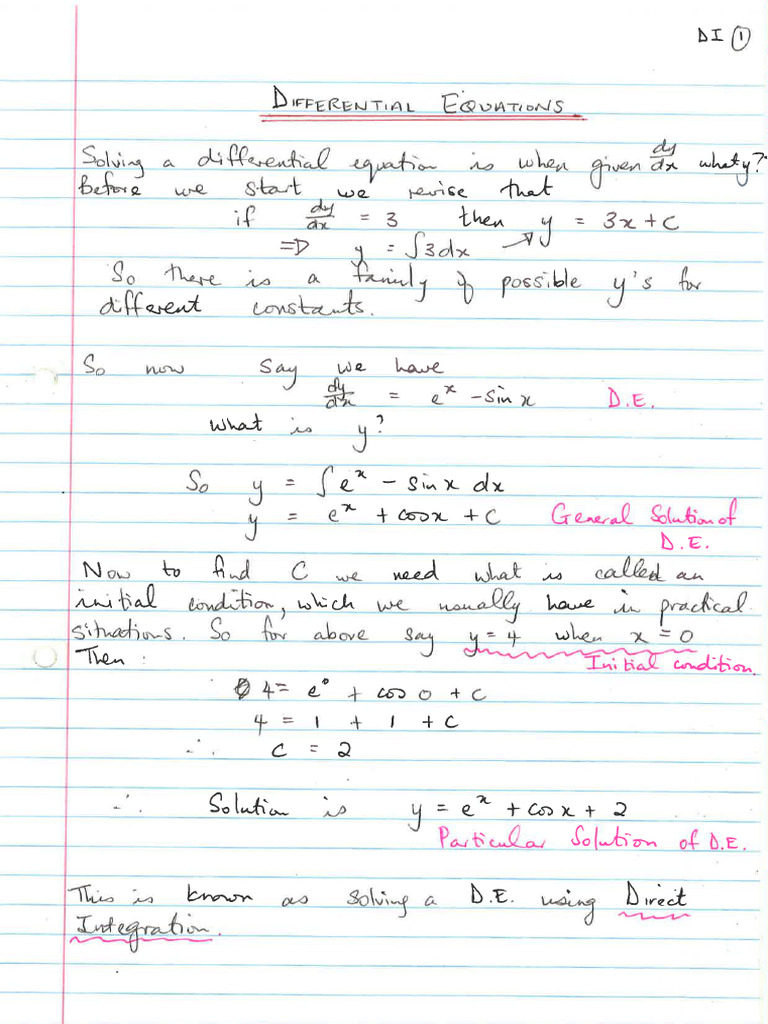 DI ①
DIFFERENTIAL EQUATIONS
Solving a differential equation is when given dy/dx what y?
Before we start we revise that
if dy/dx = 3 then y = 3x + C
⇒ y = ∫3dx ↗
So there is a family of possible y's for
different constants.
So now say we have
dy/dx = eˣ - sin x D.E.
what is y?
So y = ∫eˣ - sin x dx
y = eˣ + cos x + C General Solution of
D.E.
Now to find C we need what is called an
initial condition, which we usually have in practical
situations. So for above say y = 4 when x = 0
Then : Initial condition.
4 = e⁰ + cos 0 + C
4 = 1 + 1 + C
∴ C = 2
∴ Solution is y = eˣ + cos x + 2
Particular Solution of D.E.
This is known as solving a D.E. using Direct
Integration.